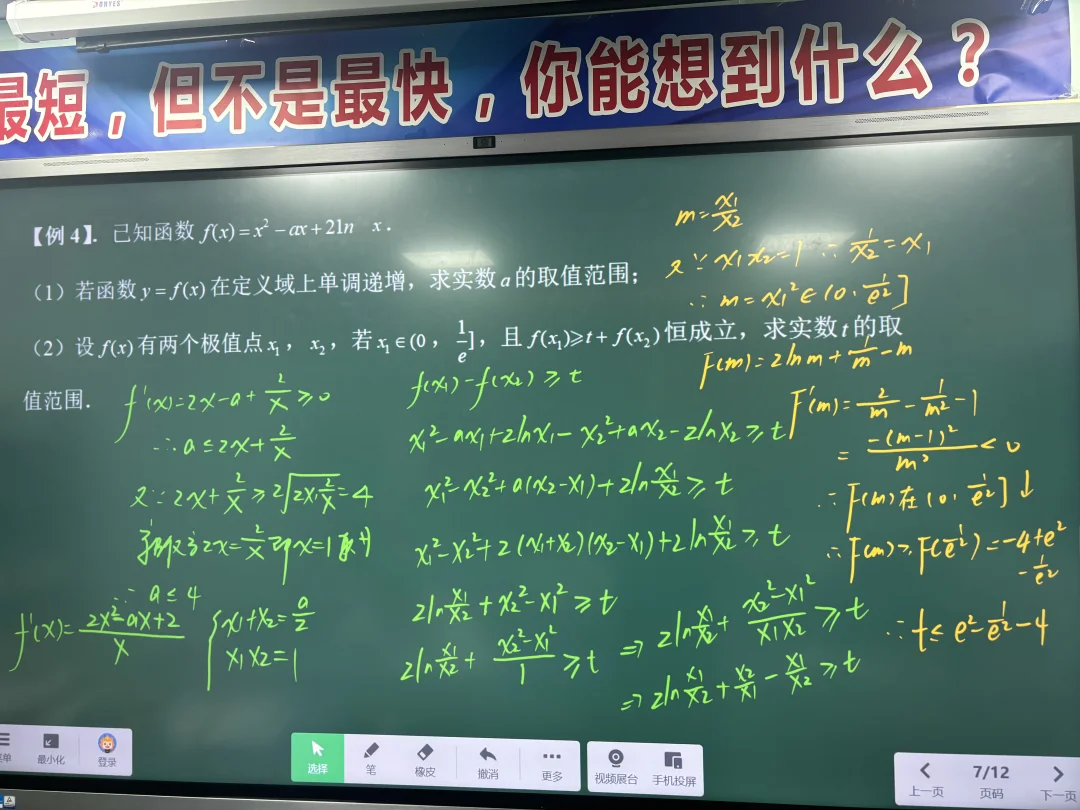 最短，但不是最快，你能想到什么？
【例 4】. 已知函数 f(x)=x²-ax+2ln x.
（1）若函数 y=f(x) 在定义域上单调递增，求实数 a 的取值范围；
（2）设 f(x) 有两个极值点 x₁，x₂，若 x₁∈(0，1/e]，且 f(x₁)≥t+f(x₂) 恒成立，求实数 t 的取
值范围.
f'(x)=2x-a+2/x≥0
∴a≤2x+2/x
又∵2x+2/x≥2√(2x·2/x)=4
2x=2/x即x=1取
∴a≤4
f'(x)=(2x²-ax+2)/x
{x₁+x₂=a/2
x₁x₂=1
f(x₁)-f(x₂)≥t
x₁²-ax₁+2lnx₁-x₂²+ax₂-2lnx₂≥t
x₁²-x₂²+a(x₂-x₁)+2ln x₁/x₂≥t
x₁²-x₂²+2(x₁+x₂)(x₂-x₁)+2ln x₁/x₂≥t
2ln x₁/x₂+x₂²-x₁²≥t
2ln x₁/x₂+(x₂²-x₁²)/1≥t
⇒2ln x₁/x₂+(x₂²-x₁²)/(x₁x₂)≥t
⇒2ln x₁/x₂+x₂/x₁-x₁/x₂≥t
m=x₁/x₂
又∵x₁x₂=1∴1/x₂=x₁
∴m=x₁²∈(0,1/e²]
F(m)=2lnm+1/m-m
F'(m)=2/m-1/m²-1
=-(m-1)²/m²<0
∴F(m)在(0,1/e²]↓
∴F(m)≥F(1/e²)=-4+e²
-1/e²
∴t≤e²-1/e²-4
最小化
登录
选择
笔
橡皮
撤消
更多
视频展台
手机投屏
上一页
7/12
页码
下一页